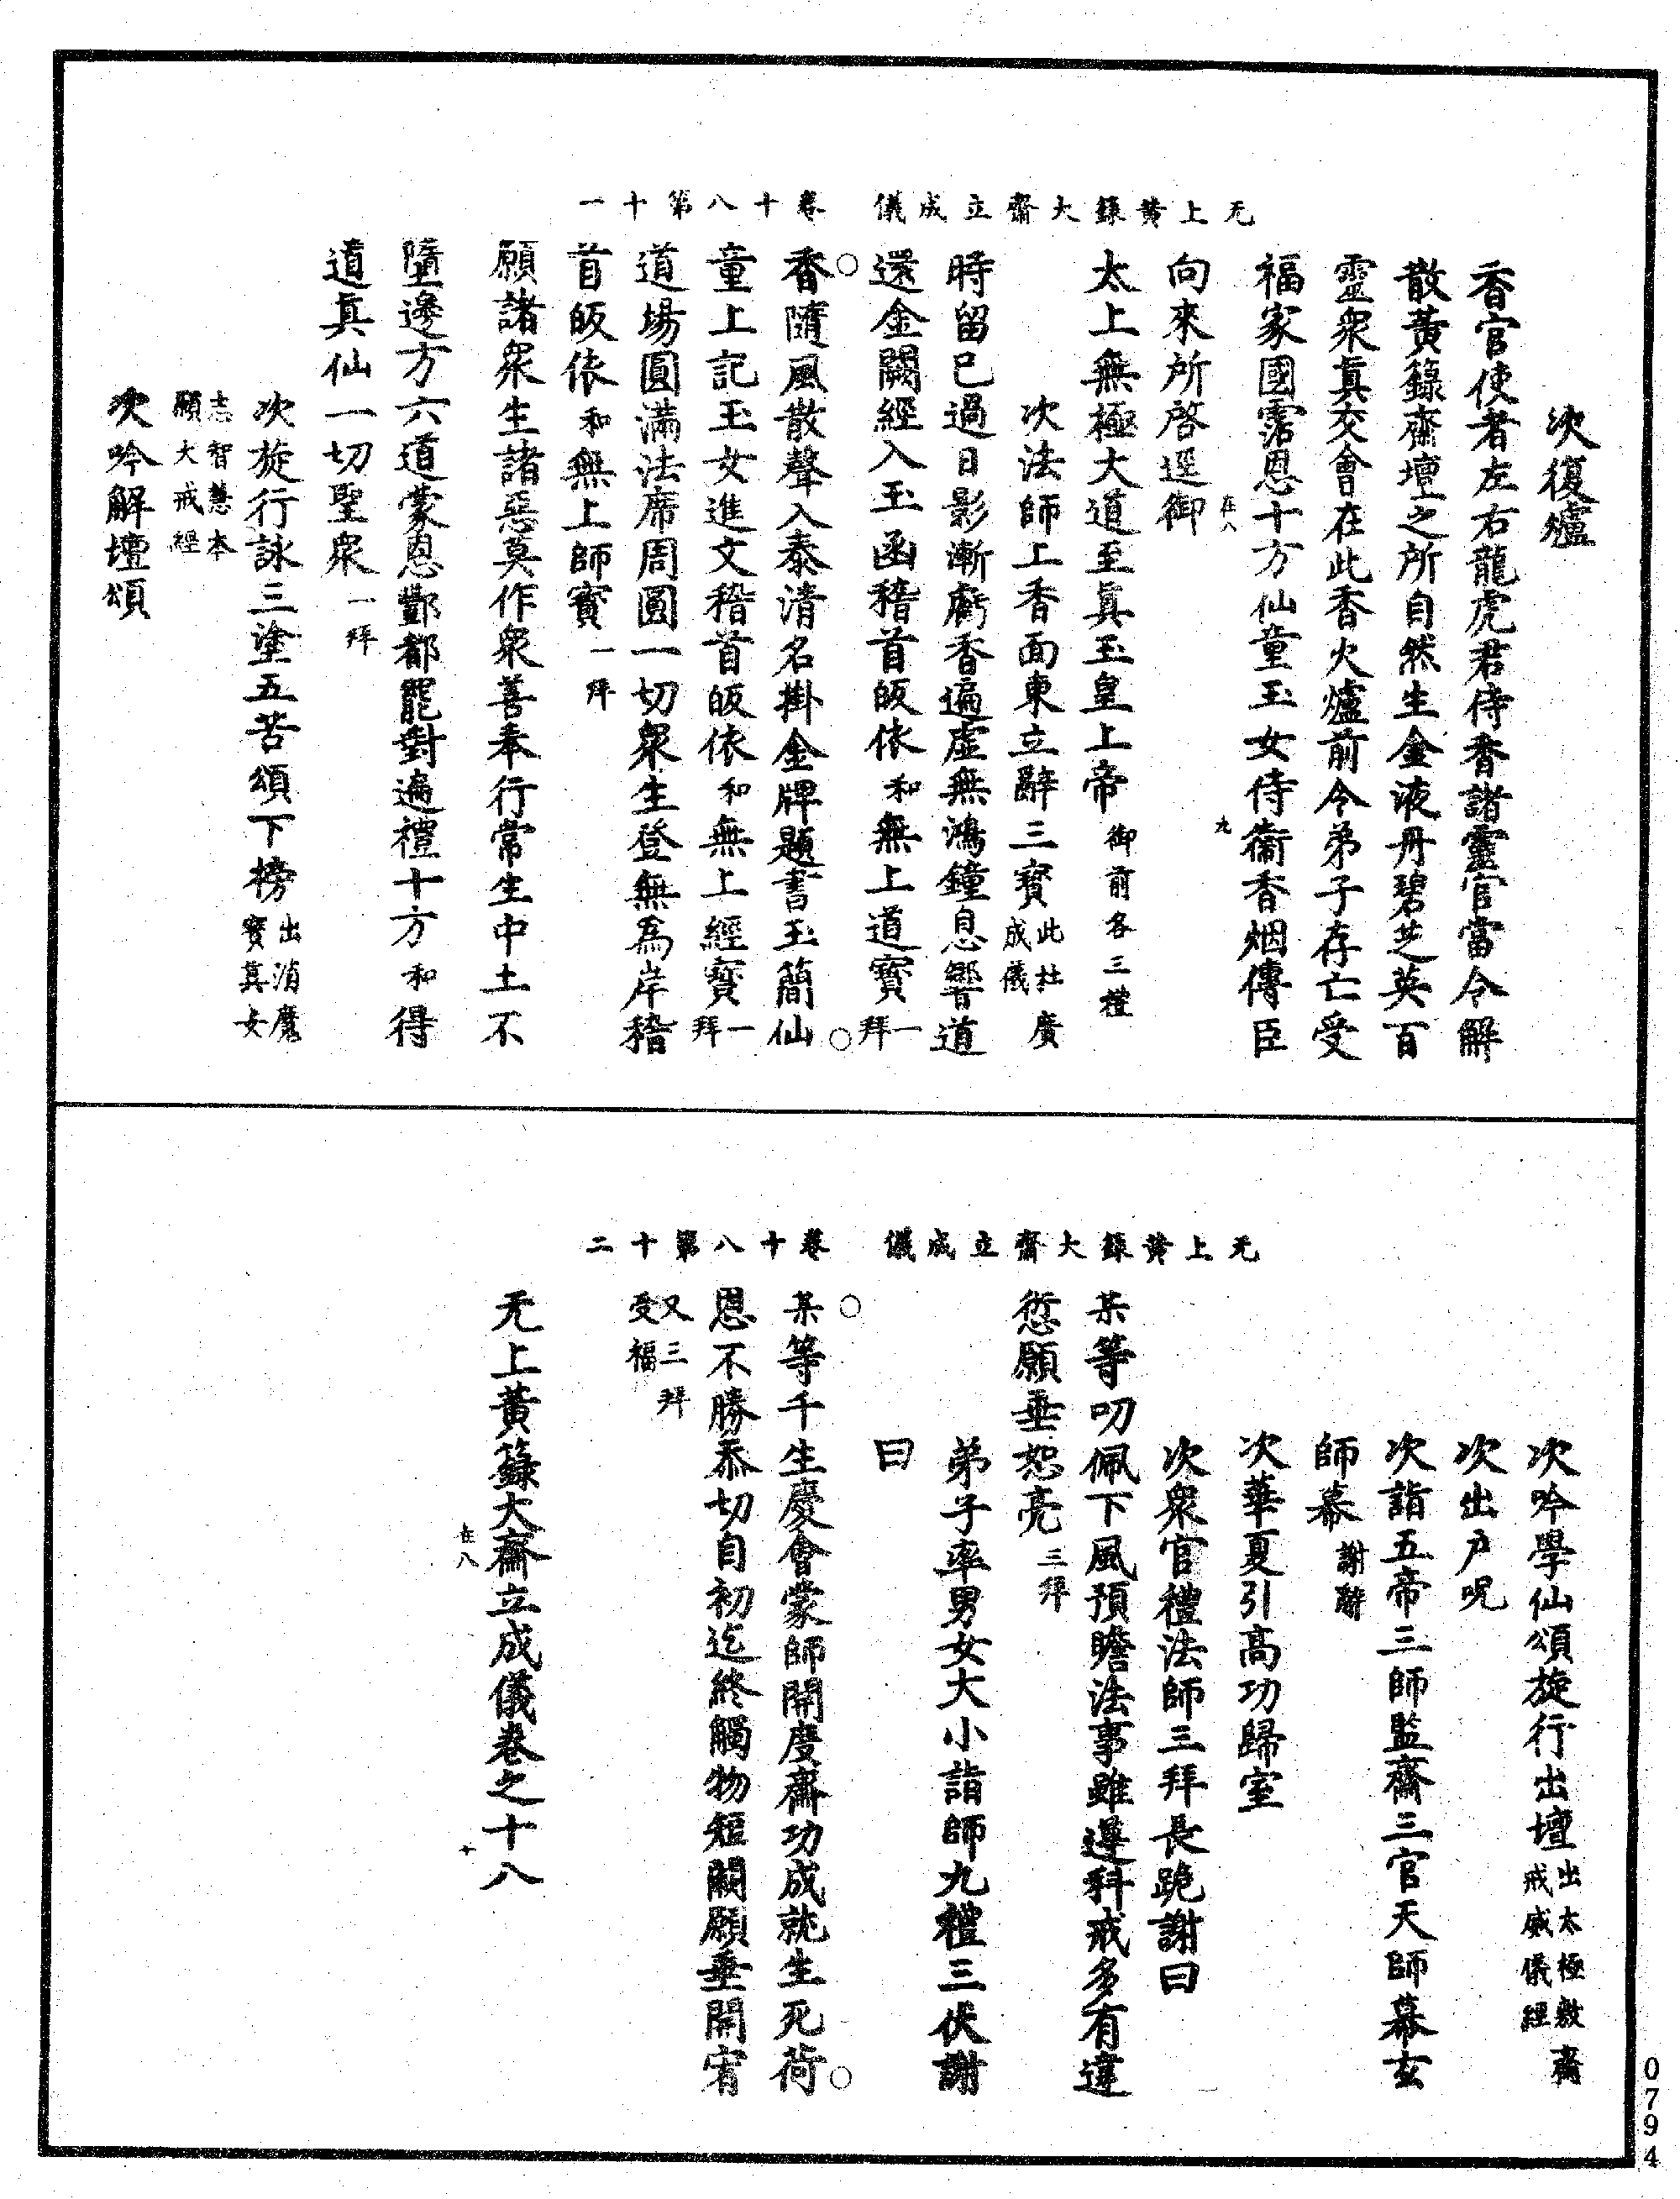 无上黃籙大齋立成儀 卷十八第十一
次復爐
香官使者左右龍虎君侍香諸靈官當令解
散黃籙齋壇之所自然生金液丹碧芝英百
靈衆眞交會在此香火爐前令弟子存亡受
福家國霑恩十方仙童玉女侍衞香烟傳臣
向來所啓逕御
在八
九
太上無極大道至眞玉皇上帝御前各三禮
次法師上香面東立辭三寶此杜廣成儀
時留已過日影漸虧香遍虛無鴻鐘息響道
還金闕經入玉函稽首皈依和無上道寶一拜
香隨風散聲入泰清名掛金牌題書玉簡仙
童上記玉女進文稽首皈依和無上經寶一拜
道場圓滿法席周圓一切衆生登無爲岸稽
首皈依和無上師寶一拜
願諸衆生諸惡莫作衆善奉行常生中土不
墮邊方六道蒙恩酆都罷對遍禮十方和得
道眞仙一切聖衆一拜
次旋行詠三塗五苦頌下榜出消魔寶眞安
志智慧本願大戒經
次吟解壇頌
无上黃籙大齋立成儀 卷十八第十二
次吟學仙頌旋行出壇出太極敷齋戒威儀經
次出戶呪
次詣五帝三師監齋三官天師幕玄
師幕謝辭
次華夏引高功歸室
次衆官禮法師三拜長跪謝曰
某等叨佩下風預瞻法事雖遵科戒多有違
愆願垂恕亮三拜
弟子率男女大小詣師九禮三伏謝
曰
某等千生慶會蒙師開度齋功成就生死荷
恩不勝忝切自初迄終觸物短闕願垂開宥
又三拜受福
无上黃籙大齋立成儀卷之十八
在八
十
0794